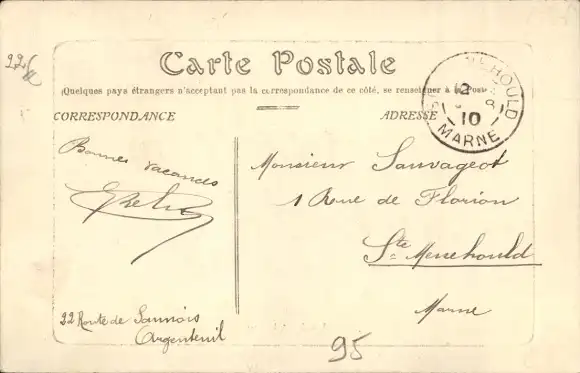 Carte Postale
(Quelques pays étrangers n'acceptant pas la correspondance de ce côté, se renseigner à la Poste
CORRESPONDANCE
ADRESSE
HOULD
12
10
MARNE
Bonnes vacances
Monsieur Sauvageot
1 Rue de Florion
Ste Menehould
Marne
22 Route de Sannois
Argenteuil
95